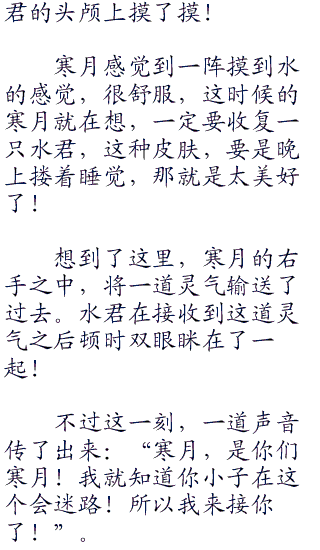 君的头颅上摸了摸！
寒月感觉到一阵摸到水
的感觉，很舒服，这时候的
寒月就在想，一定要收复一
只水君，这种皮肤，要是晚
上搂着睡觉，那就是太美好
了！
想到了这里，寒月的右
手之中，将一道灵气输送了
过去。水君在接收到这道灵
气之后顿时双眼眯在了一
起！
不过这一刻，一道声音
传了出来：“寒月，是你们
寒月！我就知道你小子在这
个会迷路！所以我来接你
了！”。